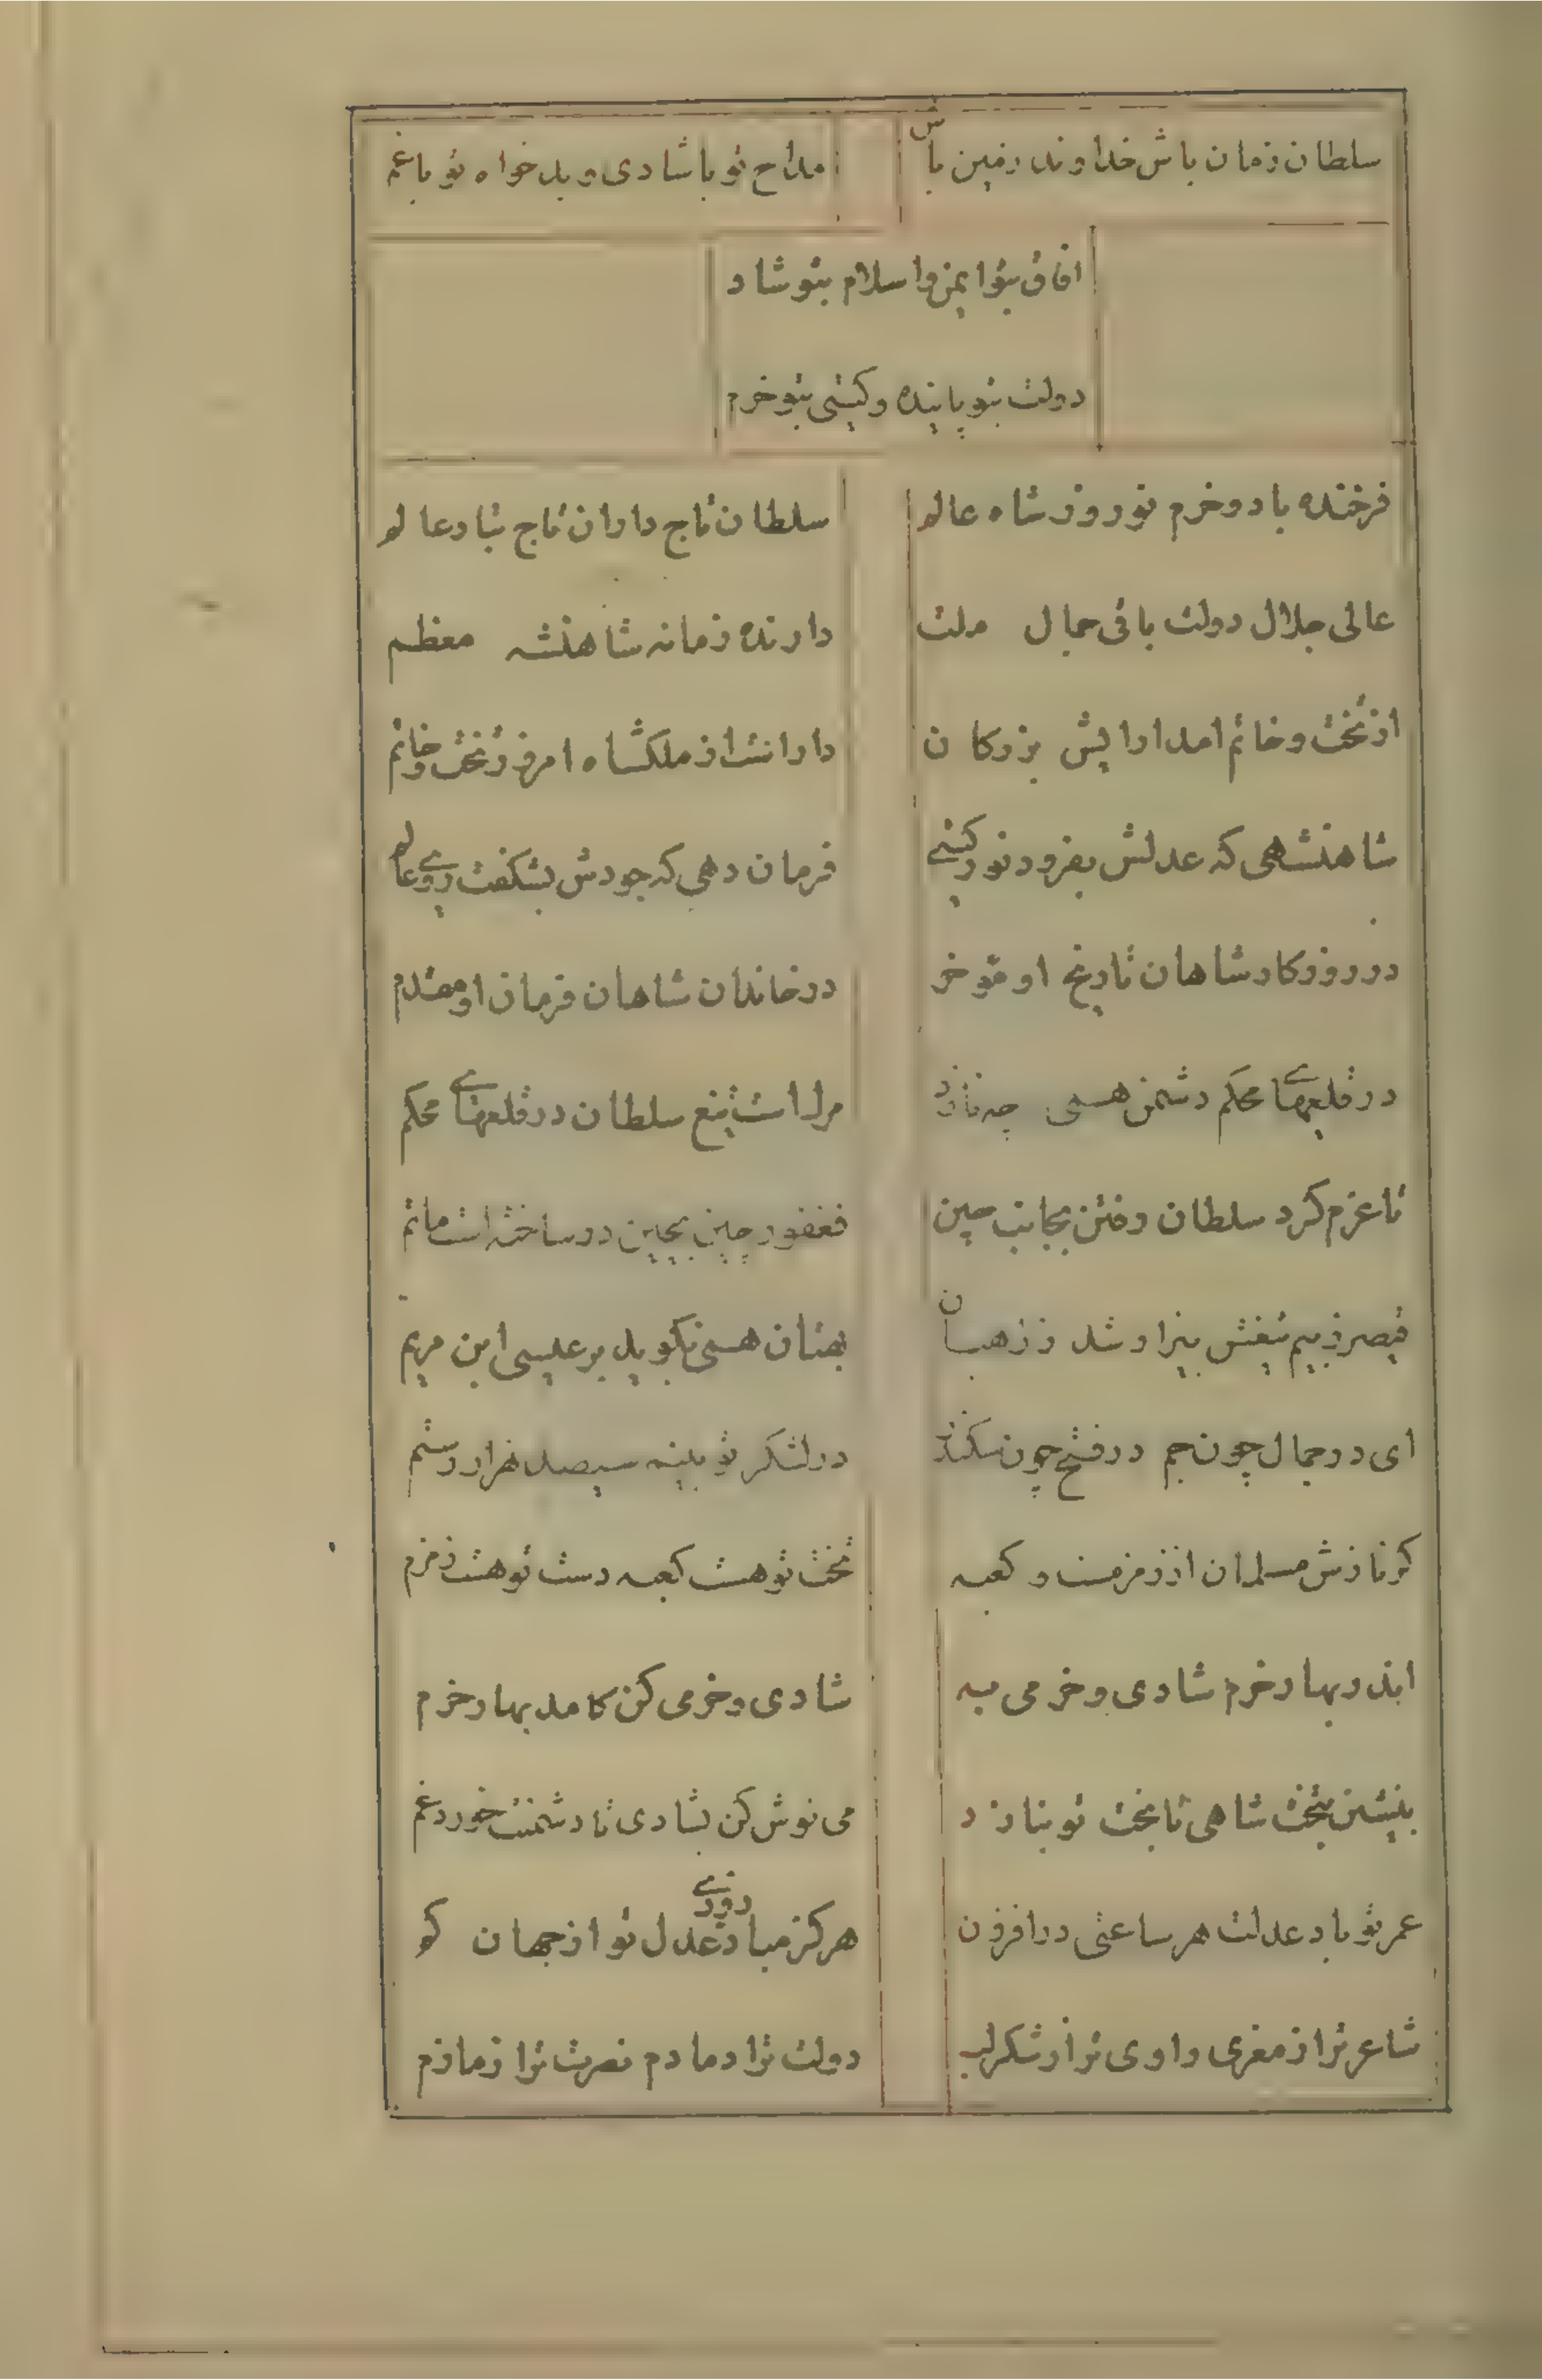 سلطان زمان باش خداوند زمین باش مداح تو با شادی و بدخواه تو با غم
افاق بتو ایمن و اسلام بتو شاد
دولت بتو پاینده و کیتی بتو خرم
فرخنده باد و خرم نوروز شاه عالم سلطان تاج داران تاج تبار عالم
عالی جلال دولت باقی جمال ملت دارنده زمانه شاهنشه معظم
از تخت و خاتم امد ارایش بزرکان داراست از ملکشاه امروز تخت و خاتم
شاهنشهی که عدلش بفزود نور کیتی فرمان دهی که جودش بشکفت روی عالم
در روزکار شاهان تاریخ او موخر در خاندان شاهان فرمان او مقدم
در قلعهای محکم دشمن همی چه نازد مر است تیغ سلطان در قلعهای محکم
تا عزم کرد سلطان رفتن بجانب چین فغفور چین بچین در ساخته است ماتم
قیصر ز بیم تیغش بیزار شد ز رهبان بهتان همی نکوید بر عیسی ابن مریم
ای در جمال چون جم در فتح چون سکندر در لشکر تو بینم سیصد هزار رستم
کر نازش مسلمان از زمزمست و کعبه تخت تو هست کعبه دست تو هست زمزم
اندر بهار خرم شادی و خرمی به شادی و خرمی کن کامد بهار خرم
بنشین بتخت شاهی تا بخت تو بنازد می نوش کن بشادی تا دشمنت خورد غم
عمر تو باد عدلت هر ساعتی در افزون هرکز مبادروزی عدل تو از جهان کم
شاعر ترا ز مغزی راوی ترا ز شکر لب دولت ترا دمادم نصرت ترا زمازم